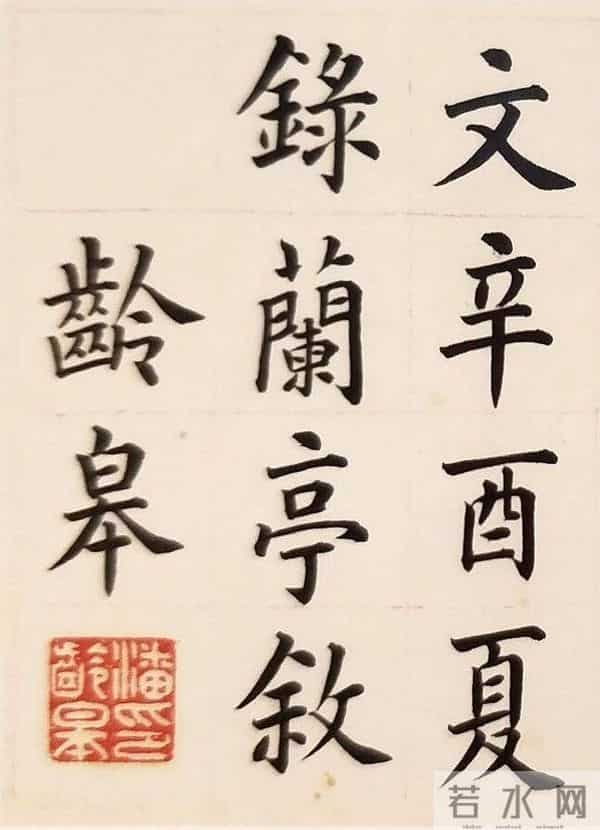 文辛酉夏
錄蘭亭敘
齡皋
潘齡皋印
若水网